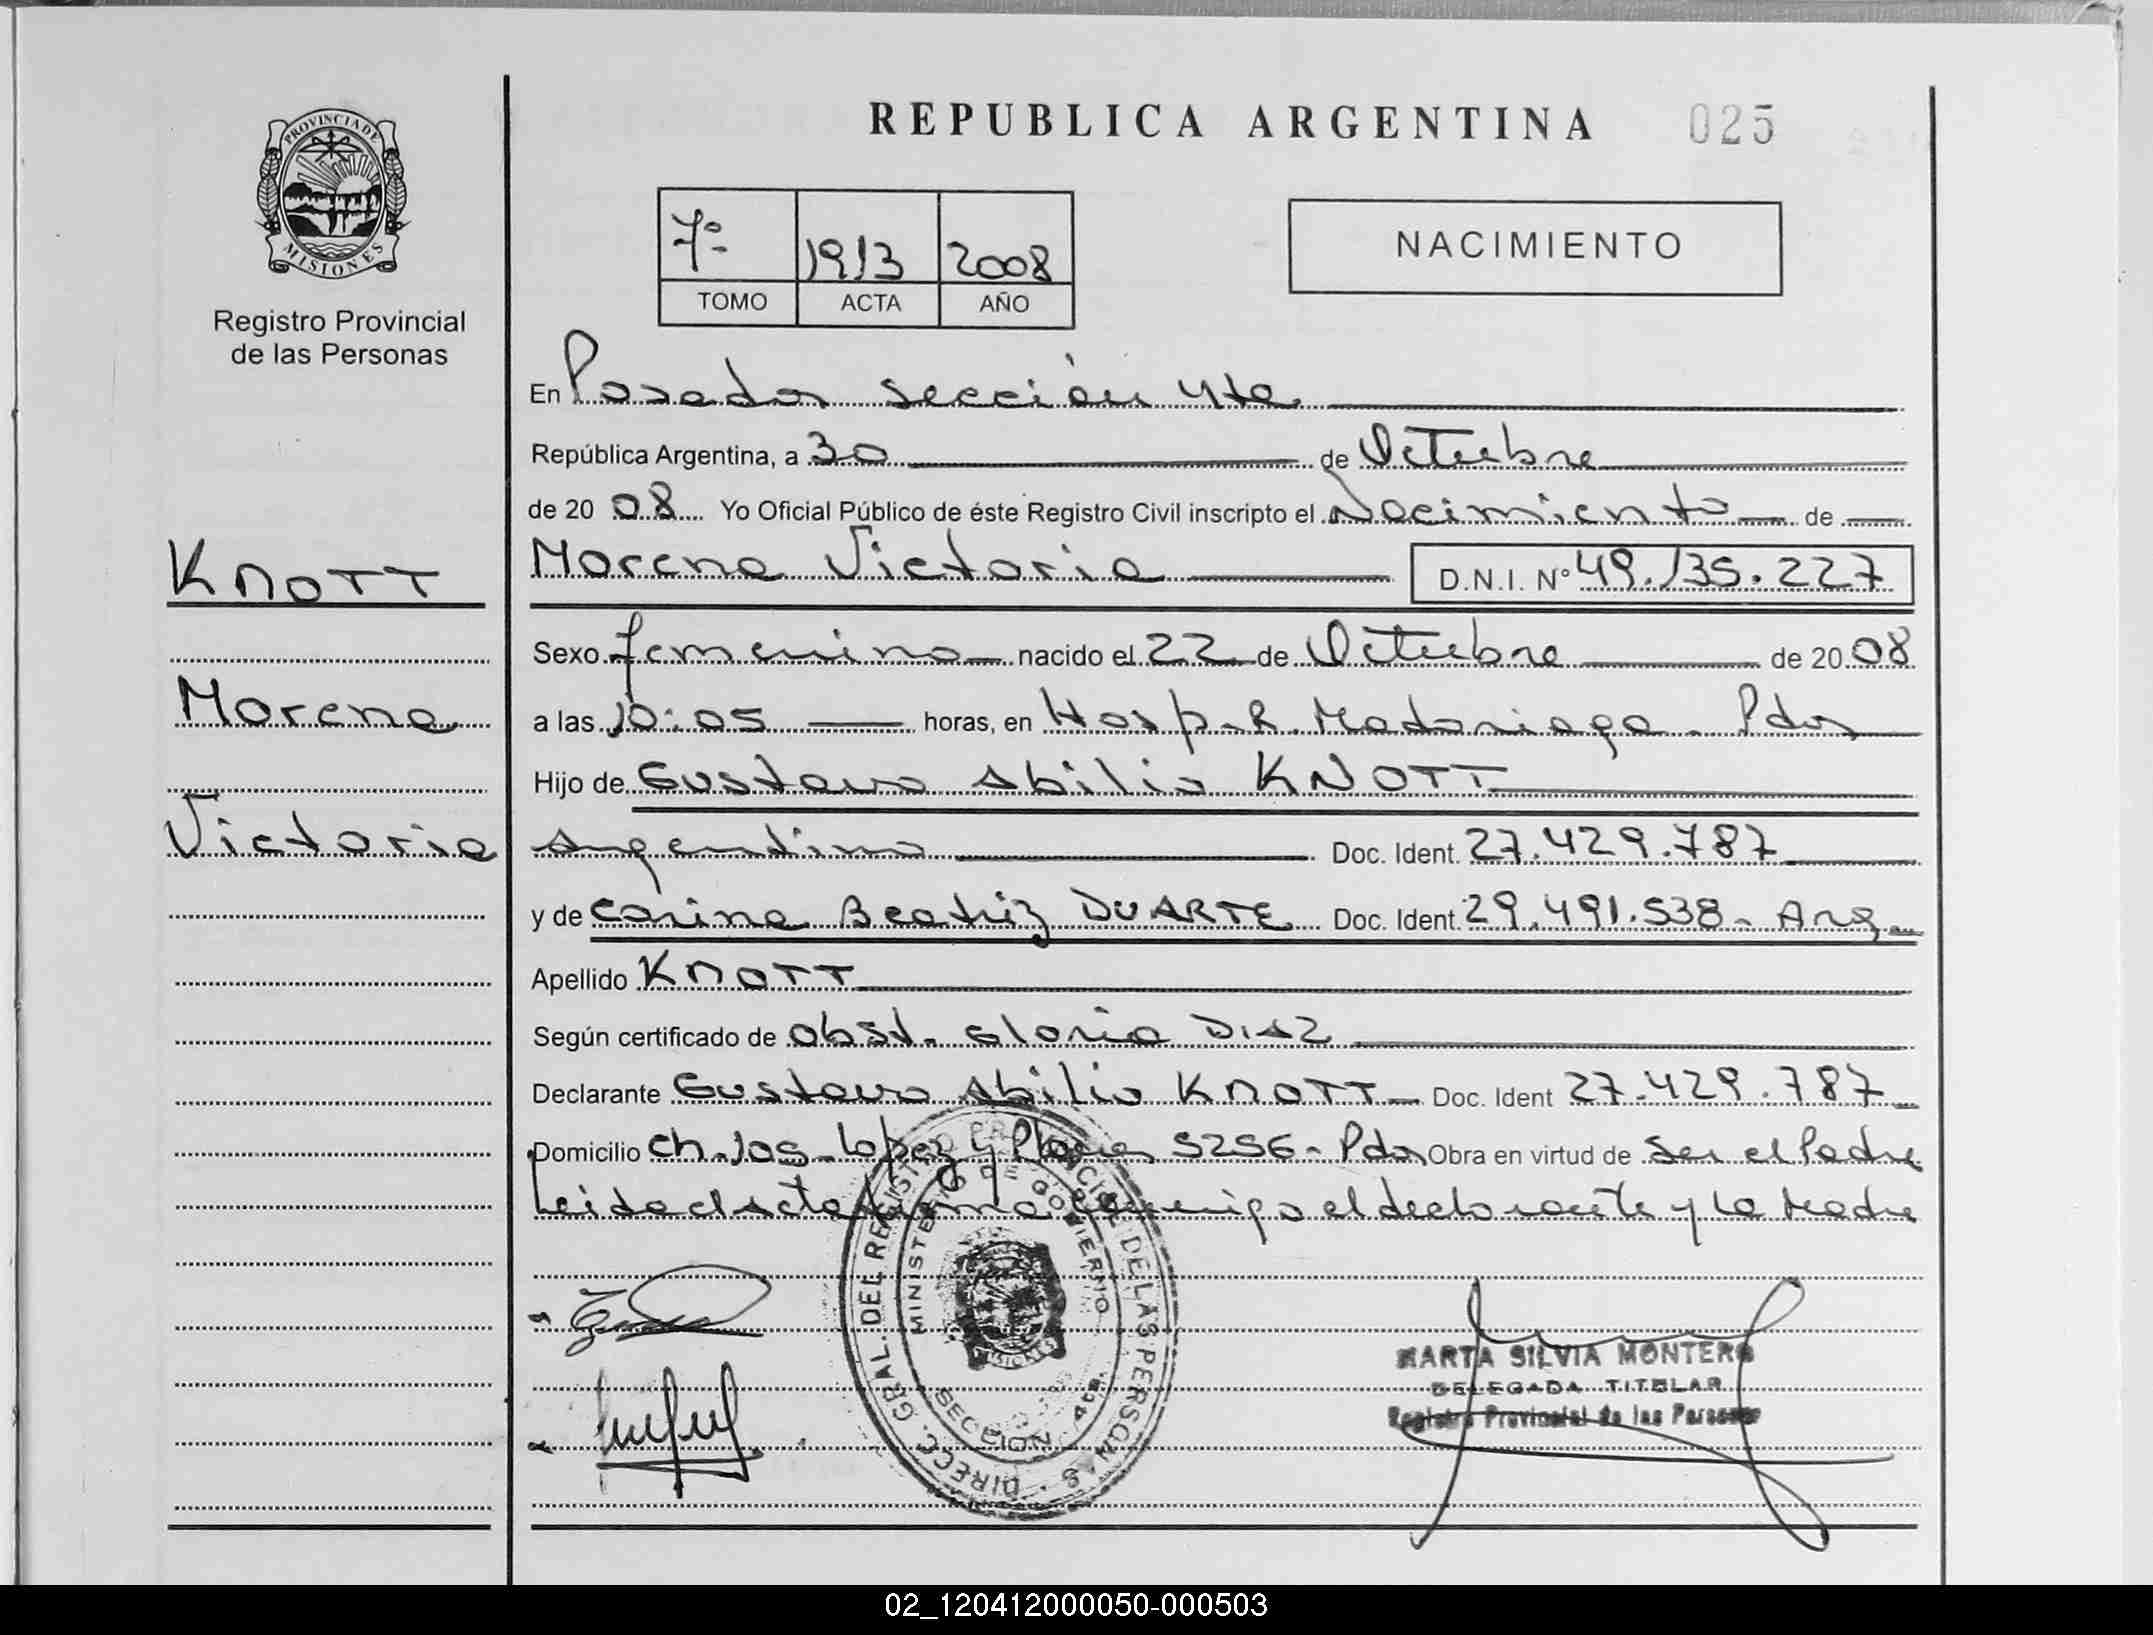 REPUBLICA ARGENTINA 025
PROVINCIA DE
MISIONES
Registro Provincial
de las Personas
7º 1913 2008
TOMO ACTA AÑO
NACIMIENTO
En Posadas sección 4ta
República Argentina, a 30 de Octubre
de 20 08 Yo Oficial Público de éste Registro Civil inscripto el Nacimiento de
Morena Victoria D.N.I. Nº 49.135.227
KNOTT
Morena
Victoria
Sexo femenino nacido el 22 de Octubre de 20 08
a las 10:05 horas, en Hosp. R. Madariaga - Pdas
Hijo de Gustavo Abilio KNOTT
Argentino Doc. Ident. 27.429.787
y de Carina Beatriz DUARTE Doc. Ident. 29.491.538 - Arg
Apellido KNOTT
Según certificado de Obst. Gloria DIAZ
Declarante Gustavo Abilio KNOTT Doc. Ident 27.429.787
Domicilio Ch. 105 - Lopez y Planes 5256 - Pdas Obra en virtud de ser el Padre
Leida el acta firma conmigo el declarante y la Madre
DIRECC. GRAL. DEL REGISTRO PROVINCIAL DE LAS PERSONAS
MINISTERIO DE GOBIERNO
MISIONES
SECCION 4ta.
MARTA SILVIA MONTERO
DELEGADA TITULAR
Registro Provincial de las Personas
02_120412000050-000503